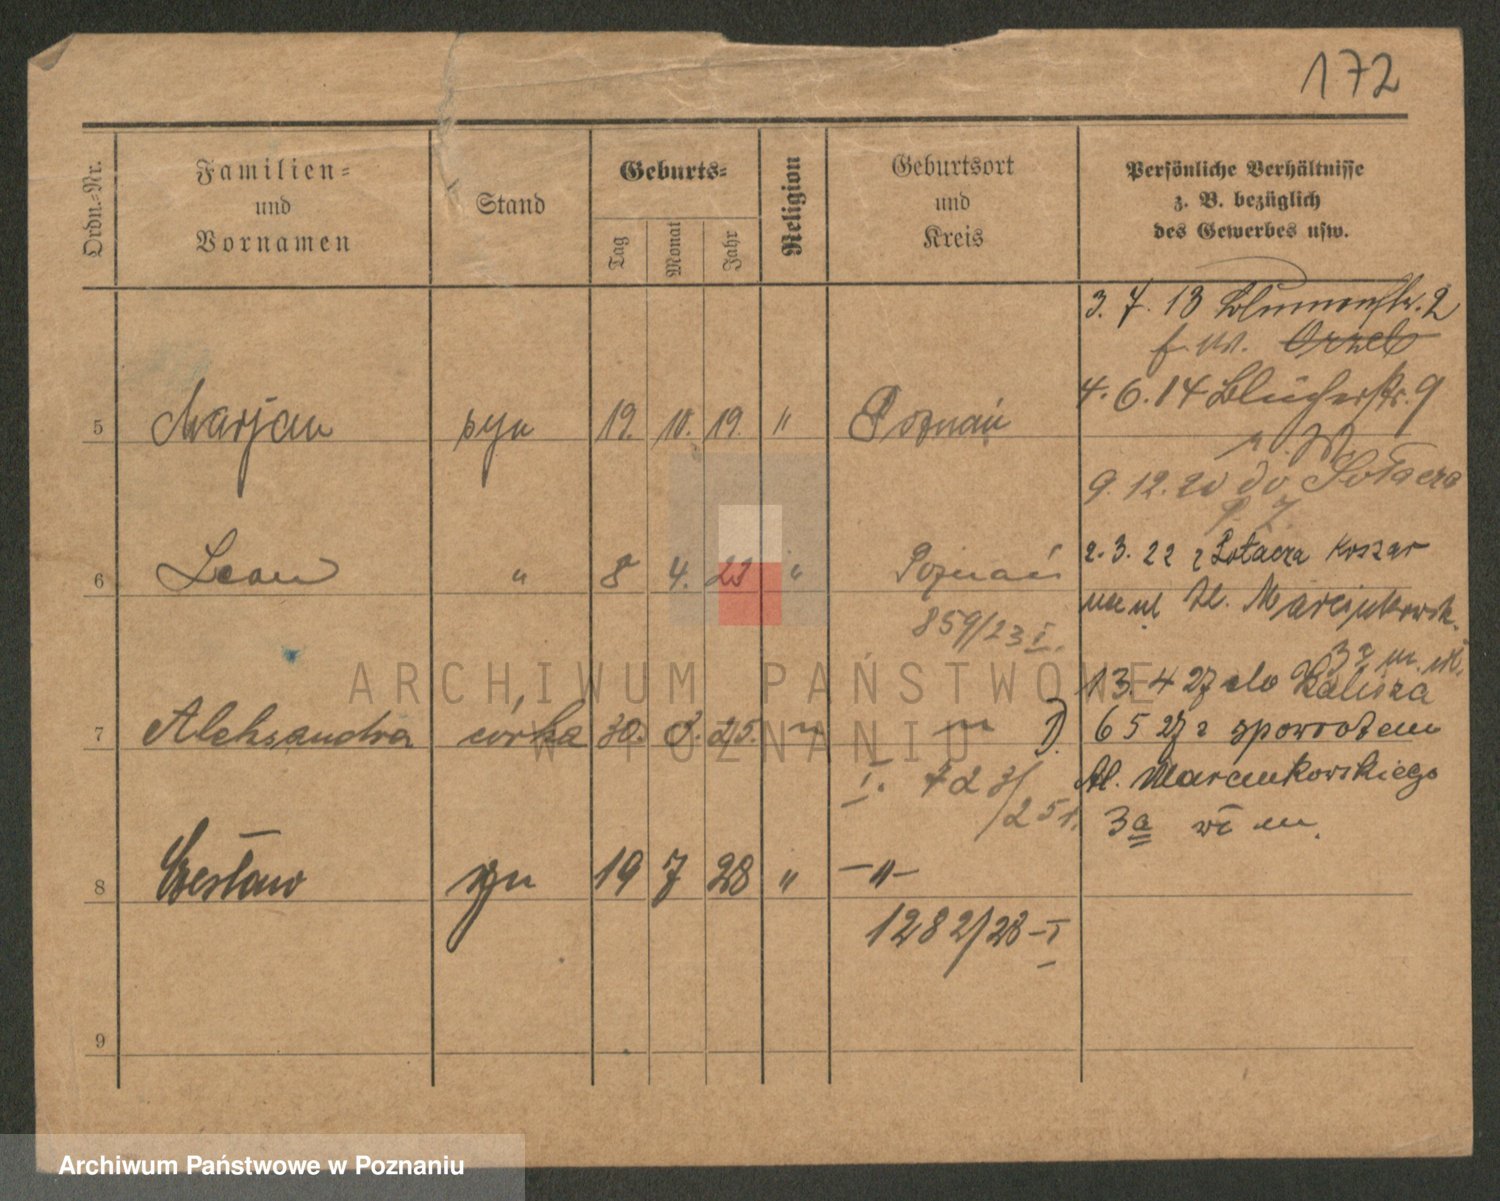 172
Ordn.-Nr.
Familien-
und
Vornamen
Stand
Geburts-
Tag
Monat
Jahr
Religion
Geburtsort
und
Kreis
Persönliche Verhältnisse
z. B. bezüglich
des Gewerbes usw.
3. 7. 13 Blumenstr. 2
f. W. Orzel
4. 6. 14 Blücherstr. 9
5 Marjan syn 12. 10. 19. " Poznań
9. 12. 20 do Sołacza
2. 3. 22 z Sołacza koszar
6 Leon " 8 4. 23 " Poznań
na ul Al. Marcinkowsk.
859/23 I.
3a m. wł.
13. 4 27 do Kalisza
7 Aleksandra córka 30. 3. 25. " "
6 5 27 z spowrotem
I. 723/
25 r.
Al. Marcinkowskiego
3a wł m.
8 Czesław syn 19 7 28 " –"–
1282/28–I
9
ARCHIWUM PAŃSTWOWE
W POZNANIU
Archiwum Państwowe w Poznaniu